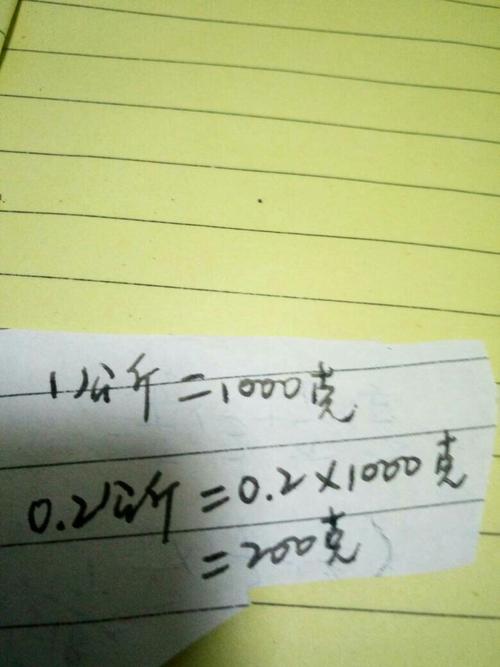 1公斤=1000克
0.2公斤=0.2×1000克
=200克